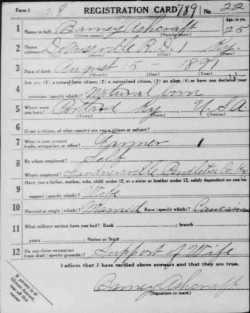 Form 1
REGISTRATION CARD
No. 22
1 Name in full Barney Ashcraft Age, in yrs. 25
2 Home address R.D. 1 Ky.
3 Date of birth August 5 1891
4 Are you (1) a natural-born citizen, (2) a naturalized citizen, (3) an alien, (4) or have you declared your intention (specify which)? Natural born
5 Where were you born? Ky U S A
6 If not a citizen, of what country are you a citizen or subject?
7 What is your present trade, occupation, or office? Farmer 1
8 By whom employed? Self
Where employed? Pendleton Co. Ky
9 Have you a father, mother, wife, child under 12, or a sister or brother under 12, solely dependent on you for support (specify which)? Wife
10 Married or single (which)? Married Race (specify which)? Caucasian
11 What military service have you had? Rank branch
years Nation or State
12 Do you claim exemption from draft (specify grounds)? Support of Wife
I affirm that I have verified above answers and that they are true.
Barney Ashcraft
(Signature or mark)